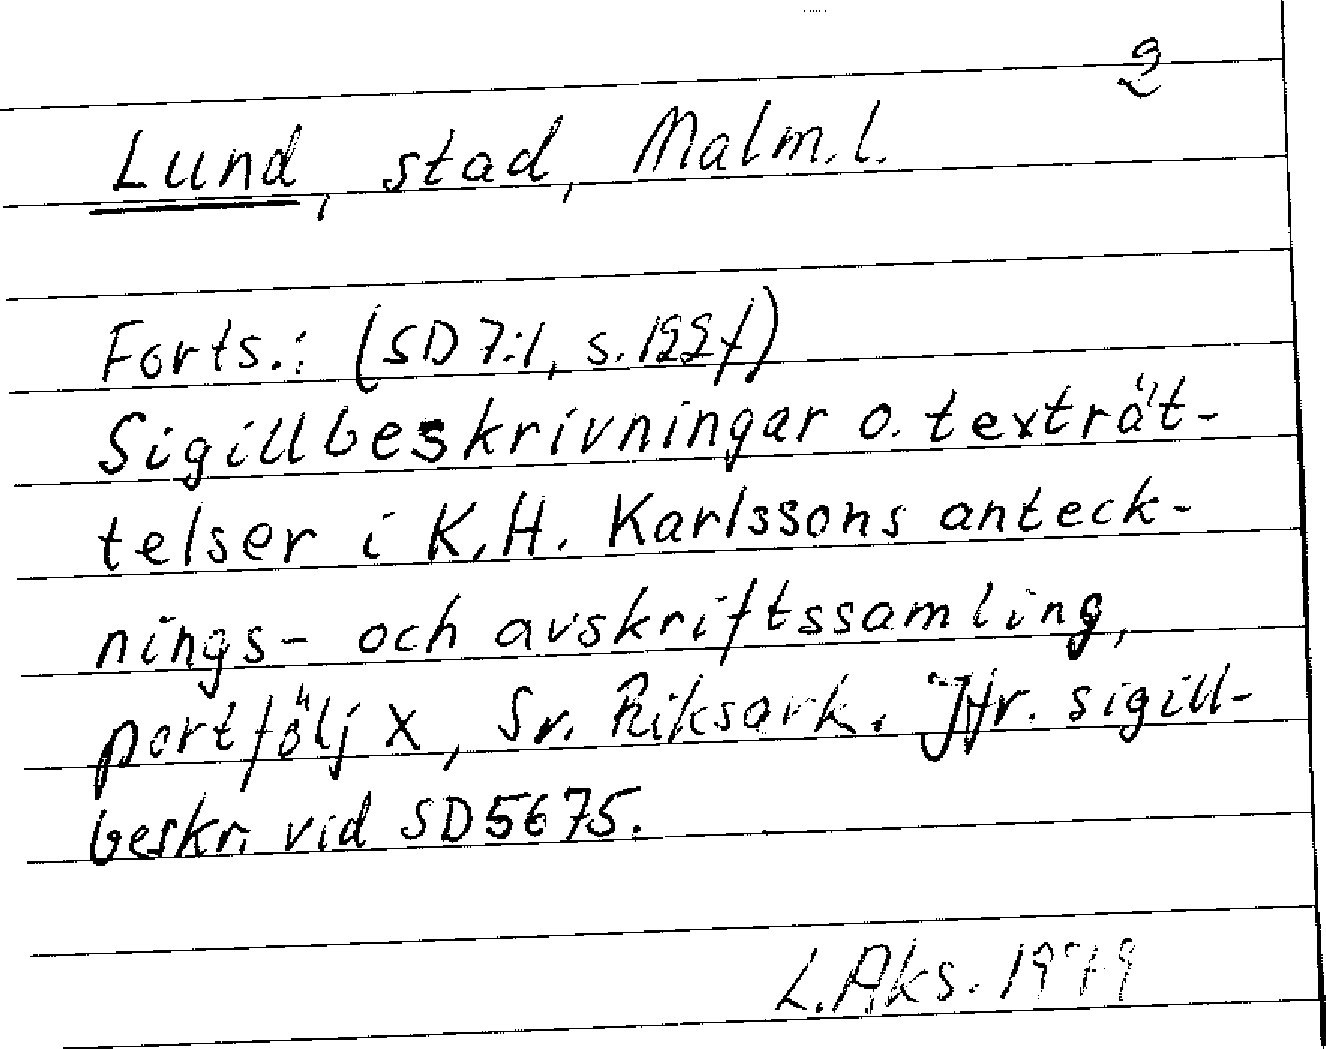 2
Lund, stad, Malm. l.
Forts.: (SD 7:1, s. 122f)
Sigillbeskrivningar o. texträt-
telser i K.H. Karlssons anteck-
nings- och avskriftssamling,
portfölj X, Sv. Riksark. Jfr. sigill-
beskr. vid SD 5675.
L. Aks. 1979